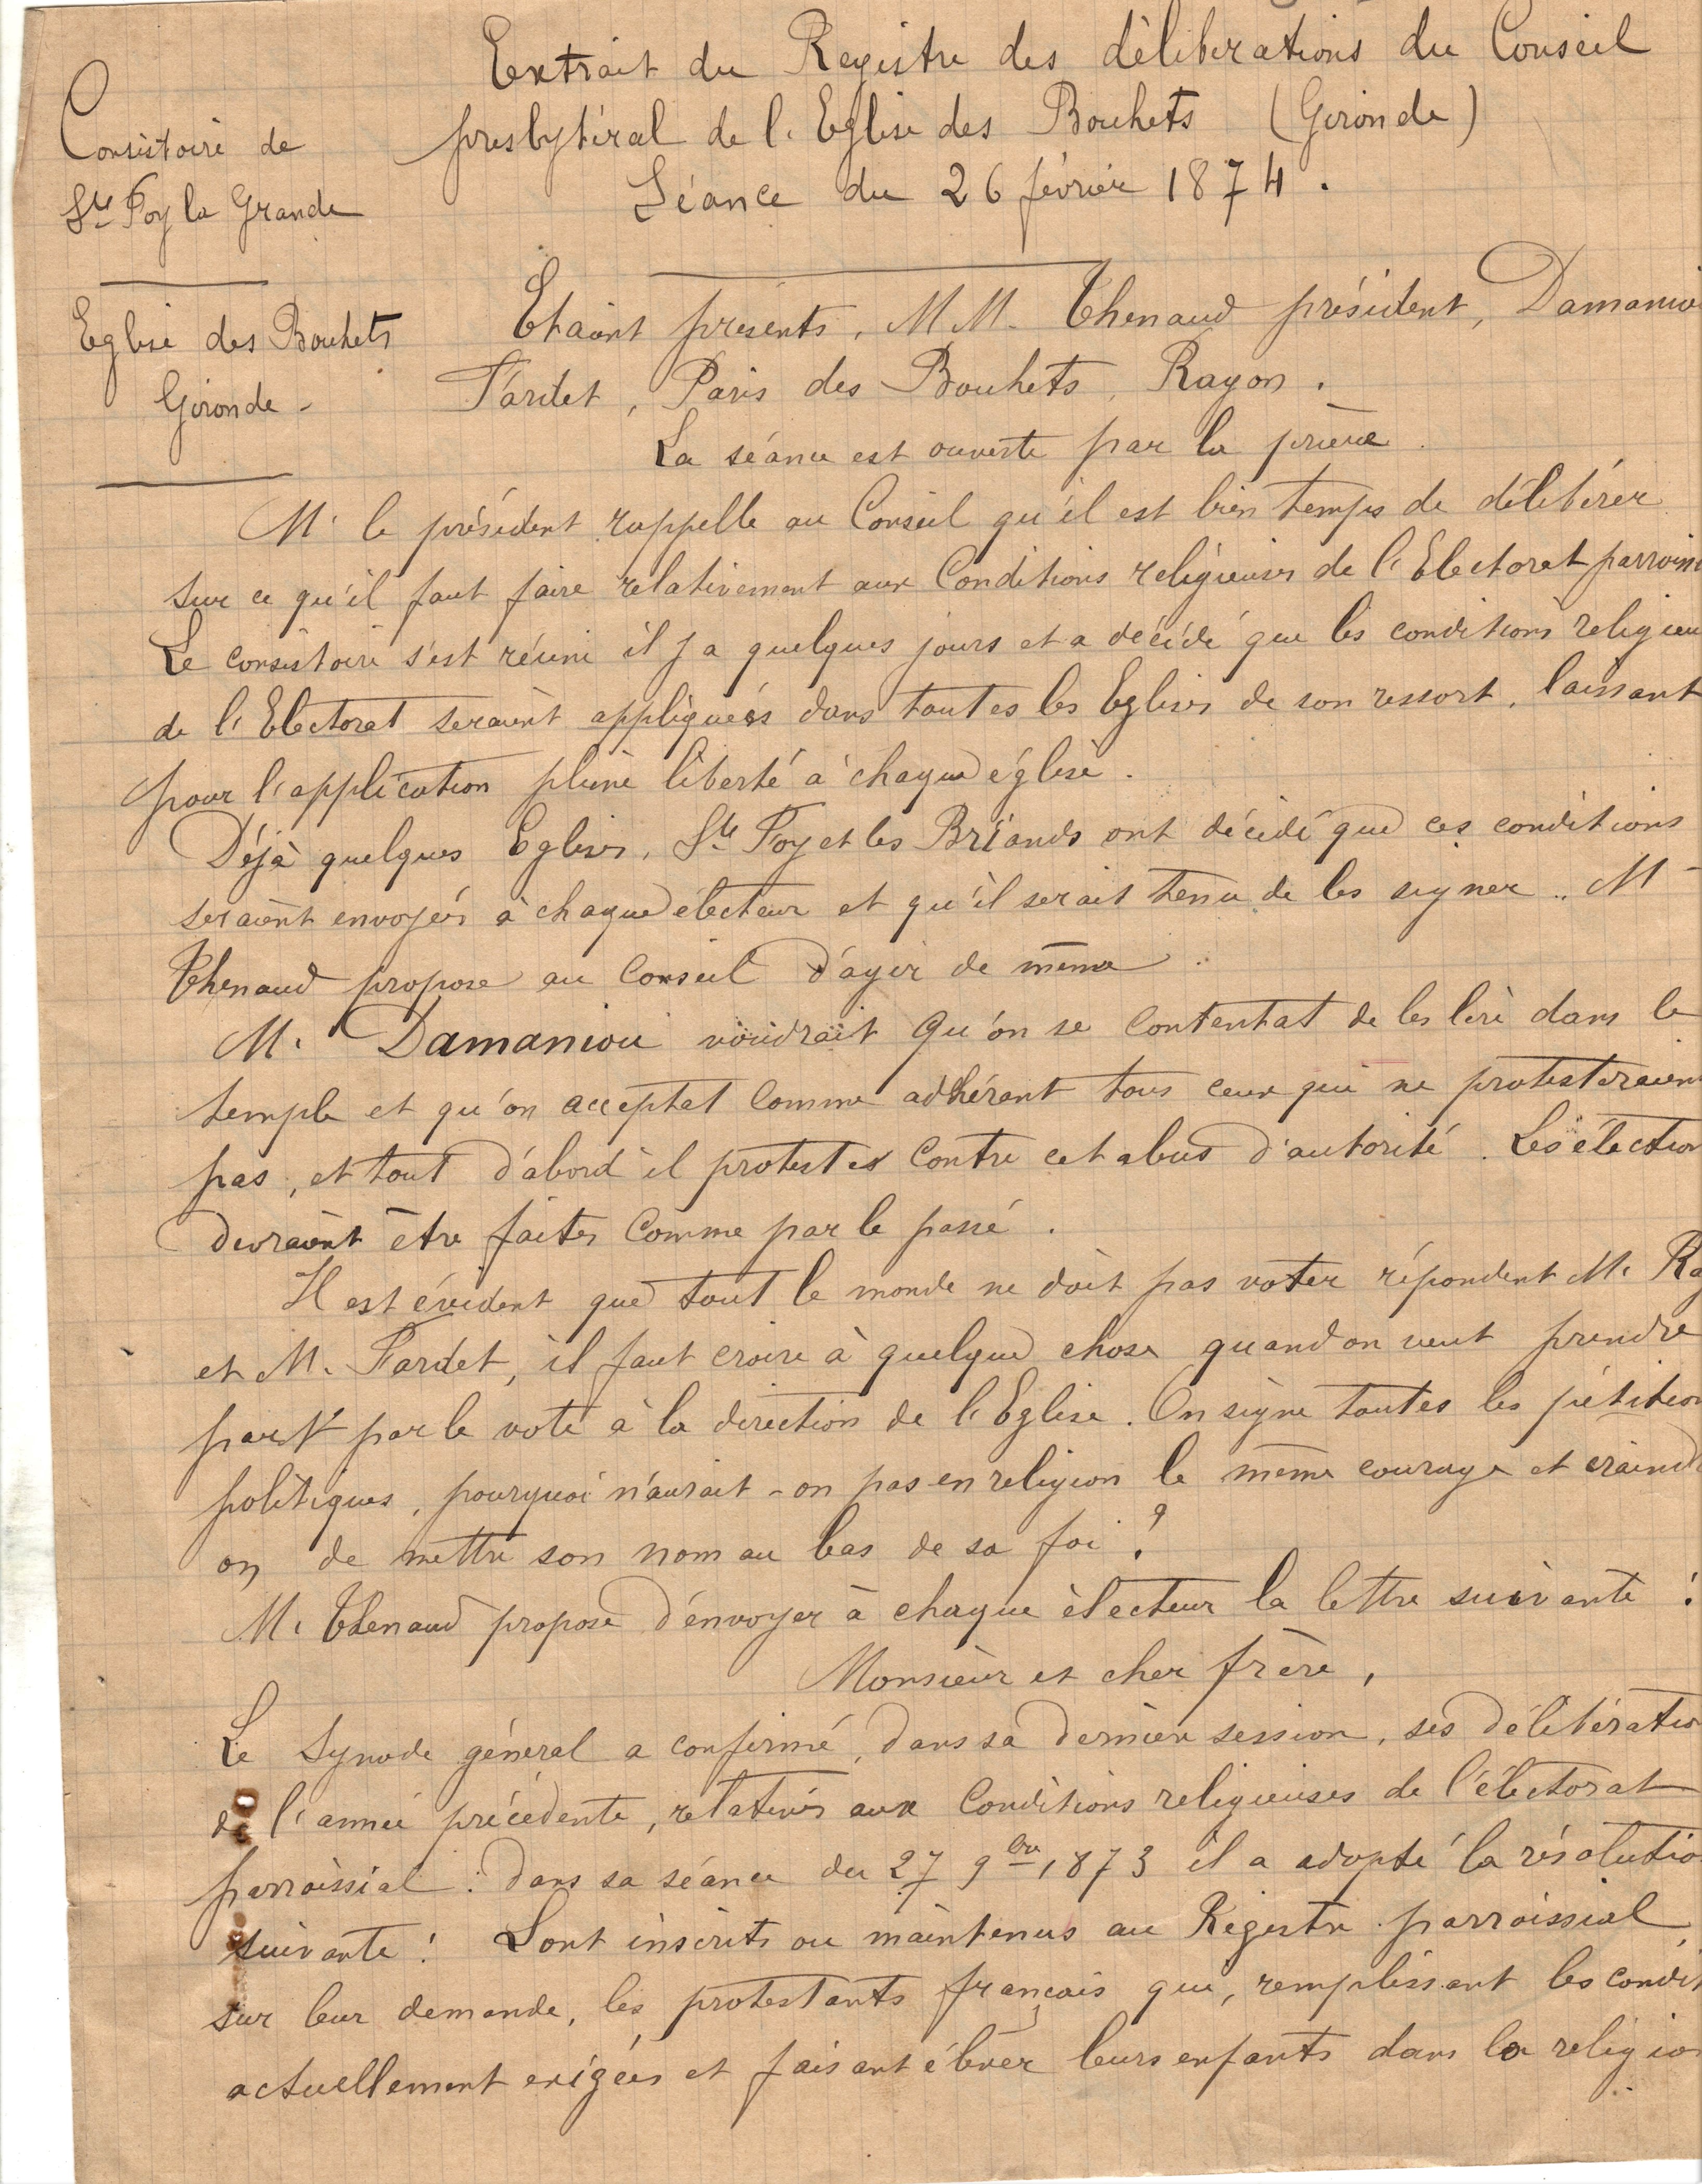 Extrait du Registre des déliberations du Conseil
presbytéral de l'Eglise des Bouhets (Gironde)
Séance du 26 février 1874.
Consistoire de
Ste Foy la Grande
Eglise des Bouhets
Gironde -
Etaient présents, MM. Thenaud président, Damaniou
Tardet, Paris des Bouhets, Rayon.
La séance est ouverte par la prière.
M. le président rappelle au Conseil qu'il est bien temps de délibérer
sur ce qu'il faut faire relativement aux Conditions religieuses de l'Electorat parroiss
Le consistoire s'est réuni il y a quelques jours et a décidé que les conditions religieu
de l'Electorat seraient appliquées dans toutes les Eglises de son ressort, laissant
pour l'application pleine liberté à chaque église.
Déjà quelques Eglises, Ste Foy et les Briands ont décidé que ces conditions
seraient envoyées à chaque électeur et qu'il serait tenu de les signer.. M -
Thenaud propose au Conseil d'agir de même..
M. Damaniou voudrait qu'on se contentat de les lire dans le
temple et qu'on acceptat comme adhérant tous ceux qui ne protesteraien
pas, et tout d'abord il proteste contre cet abus d'autorité. Les élection
devraient être faites comme par le passé.
Il est évident que tout le monde ne doit pas voter répondent M. Ra
et M. Tardet, il faut croire à quelque chose quand on veut prendre
part par le vote à la direction de l'Eglise. On signe toutes les pétition
politiques, pourquoi n'aurait-on pas en religion le même courage et craind
on de mettre son nom au bas de sa foi?
M. Thenaud propose d'envoyer à chaque électeur la lettre suivante:
Monsieur et cher frère,
Le Synode général a confirmé, dans sa dernière session, ses délibératio
de l'année précédente, relatives aux Conditions religieuses de l'électorat
parroissial: Dans sa séance du 27 9bre 1873 il a adopté la résolutio
suivante: Sont inscrits ou maintenus au Registre parroissial,
sur leur demande, les protestants français qui, remplissant les condit
actuellement exigées et faisant élever leurs enfants dans la religion